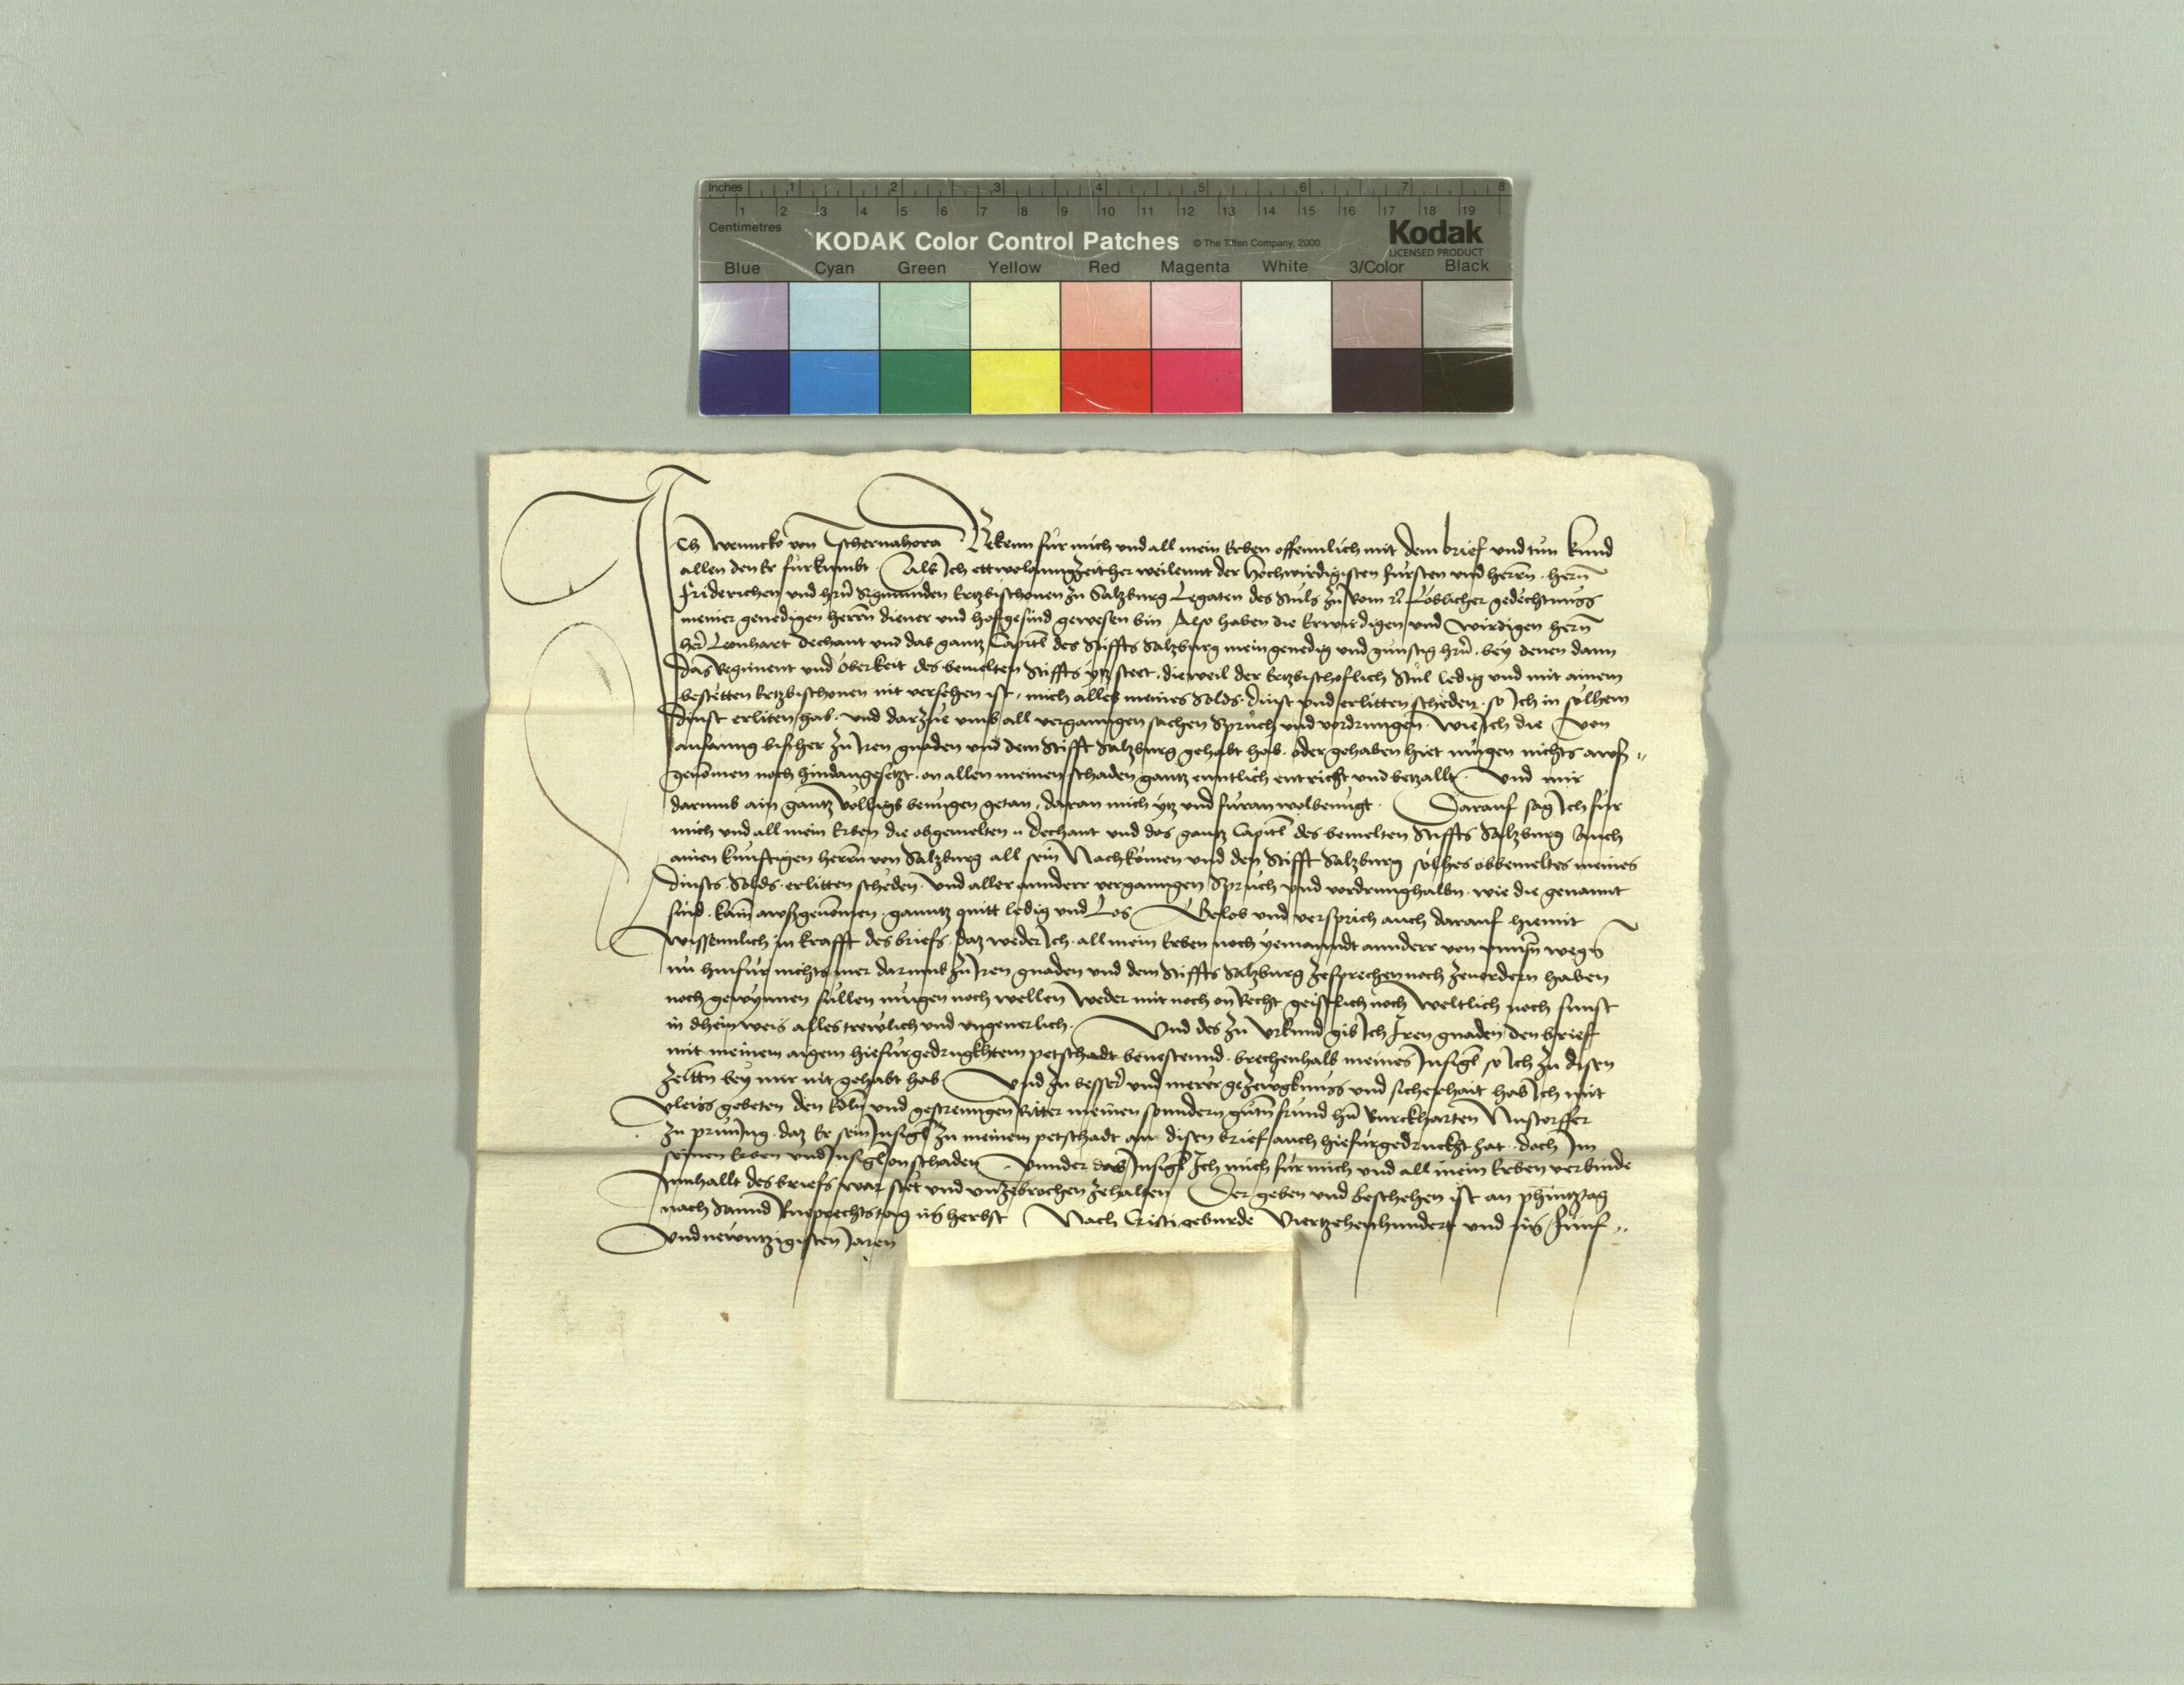 Inches 1 2 3 4 5 6 7 8
1 2 3 4 5 6 7 8 9 10 11 12 13 14 15 16 17 18 19
Centimetres
KODAK Color Control Patches © The Tiffen Company, 2000 Kodak
LICENSED PRODUCT
Blue Cyan Green Yellow Red Magenta White 3/Color Black
Ich Wenncko von Tschernahora Bekenn für mich und all mein Erben offennlich mit dem brief und tun kund
allen den Er fürkumbt. Als Ich ettwelanng zeither weilennt der Hochwirdigisten fürsten und herrn. hern
Friderichen und hrn Sigmunden Ertzbischouen zu Saltzburg Legaten des Stuls zu Rom Löblicher gedechtnuss
meiner genedigen herrn diener und hofgesind gewesen bin Also haben die Erwirdigen und Wirdigen hern
her Leonhart dechant und das gantz Capitl des Stiffts Saltzburg mein genedig und günstig hrn. bey denen dann
das Regiment und Oberkeit des bemelten Stiffts ytz steet. dieweil der Ertzbischoflich Stul ledig und mit ainem
bestetten Ertzbischouen nit versehen ist. mich alles meines Solds. dinst und erlitten scheden. so Ich in solhem
dinst erliten hab. und darzue umb all vergangen sachen Spruch und vordrungen. wie Ich die von
anfanng bisher zu Iren gnaden und dem Stifft Saltzburg gehabt hab. oder gehaben hiet mügen nichts awß„
genomen noch hindangesetzt. on allen meinen schaden gantz enntlich entricht und betzallt. und mir
darumb ain gantz völligs benügen getan. daran mich ytz und füran wolbenügt. Darauf sag Ich für
mich und all mein Erben die obgemelten „ dechant und das gantz Capitl des bemelten Stiffts Saltzburg Auch
ainen künftigen herrn von Saltzburg all sein Nachkomen und den Stifft Saltzburg solhes obbemeltes meines
dinsts. Solds. erlitten scheden. und aller annderr vergangen Spruch und vordrunghalbn. wie die genannt
sind. kains awßgenomen. ganntz quitt ledig und Los Gelob und versprich auch darauf hiemit
wissennlich in krafft des briefs. daz weder Ich. all mein Erben noch yemanndt annderr von unnsern wegen
nu hinfür nichts mer darumb zu Iren gnaden und dem Stiffts Saltzburg zesprechen noch zeuordern haben
noch gewynnen sullen mügen noch wellen Weder mit noch on Recht geistlich noch Weltlich noch sunst
in dhein weis alles trewlich und ungeuerlich. Und des zu Urkund gib Ich Iren gnaden den brieff
mit meinem aigem hiefürgedrugkhtem petschadt beuestennd. brechenhalb meines Insigl so Ich zu disen
zeitten bey mir nit gehabt hab Und zu besserr und merer gezewgknuss und sicherhait hab Ich mit
vleiss gebeten den Edln und gestrenngen Ritter meinen sonndern gutn frund hrn Burckharten Nustorffer
zu prünnyng. daz Er sein Insigl zu meinem petschadt an disen brief auch hiefürgedruckht hat. doch Im
seinen Erben und Insigl on schaden. Unnder das Insigl Ich mich für mich und all mein Erben verbinde
Innhallt des briefs war stet und unzebrochen zehalten Der geben und beschehen ist an phintztag
nach Sannd Rueprechtstag im herbst Nach Cristi geburde Viertzehenhundert und im Fünf„
und newntzigisten Jaren